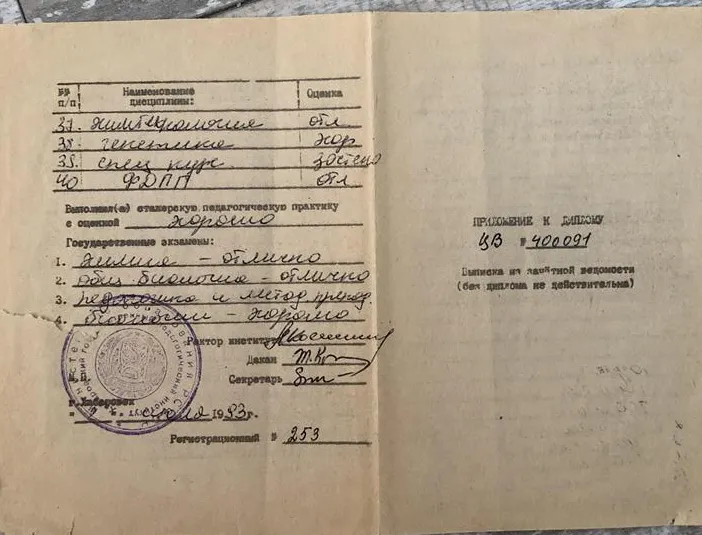 №№ п/п Наименование дисциплины: Оценка
37. химтехнология отл
38. генетика хор
39. спец курс зачтено
40 ФДПП отл
Выполнил(а) стажерскую педагогическую практику
с оценкой хорошо
Государственные экзамены:
1. химия - отлично
2. общ. биология - отлично
3. педагогика и метод. препод.
4. биологии - хорошо
Ректор института
Декан
Секретарь
г. Хабаровск
июля 1993г.
Регистрационный № 253
ПРИЛОЖЕНИЕ К ДИПЛОМУ
ЦВ № 400091
Выписка из зачётной ведомости
(без диплома не действительна)